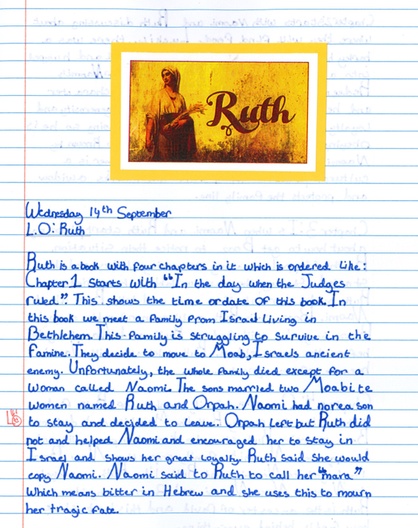 Ruth
Wednesday 14th September
L.O: Ruth
Ruth is a book with four chapters in it which is ordered like:
Chapter 1 starts with "In the day when the Judges
ruled." This shows the time or date of this book. In
this book we meet a family from Israel living in
Bethlehem. This family is struggling to survive in the
famine. They decide to move to Moab, Israels ancient
enemy. Unfortunately, the whole family died except for a
woman called Naomi. The sons married two Moabite
women named Ruth and Orpah. Naomi had no reason
to stay and decided to leave. Orpah left but Ruth did
not and helped Naomi and encouraged her to stay in
Israel and shows her great loyalty. Ruth said she would
copy Naomi. Naomi said to Ruth to call her "mara"
which means bitter in Hebrew and she uses this to mourn
her tragic fate.